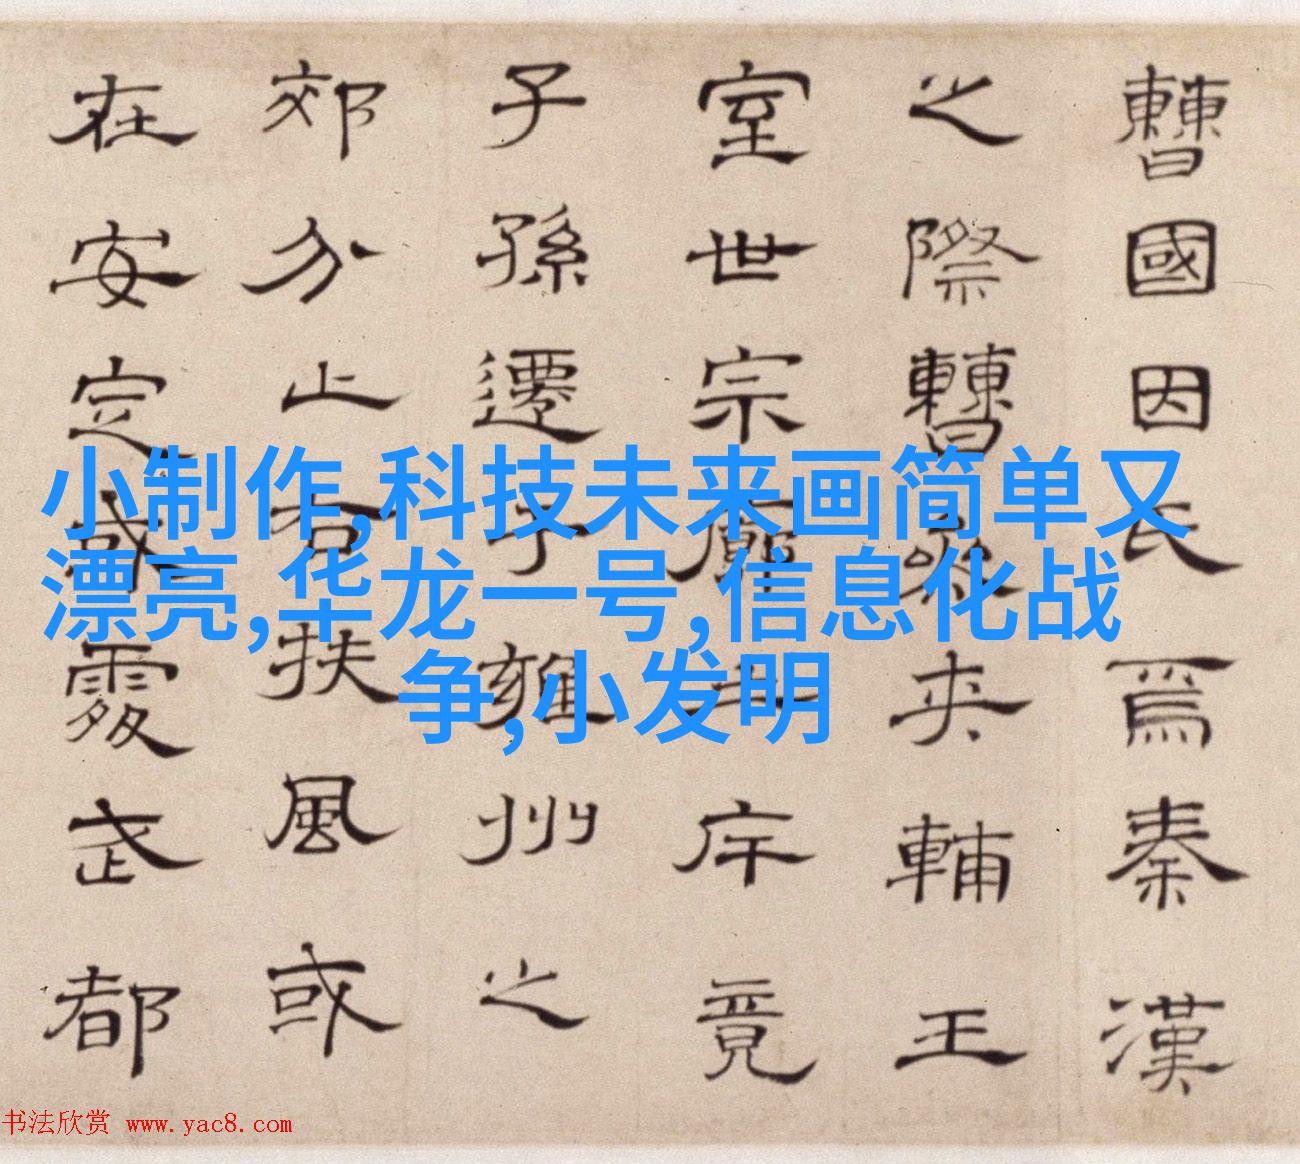 曹國因氏焉秦漢
之際曹參夾輔王
室世宗廓土斥竟
子孫遷于雍州之
郊分止右扶風或
在安定或處武都
小制作,科技未来画简单又
漂亮,华龙一号,信息化战
争,小发明
书法欣赏 www.yac8.com